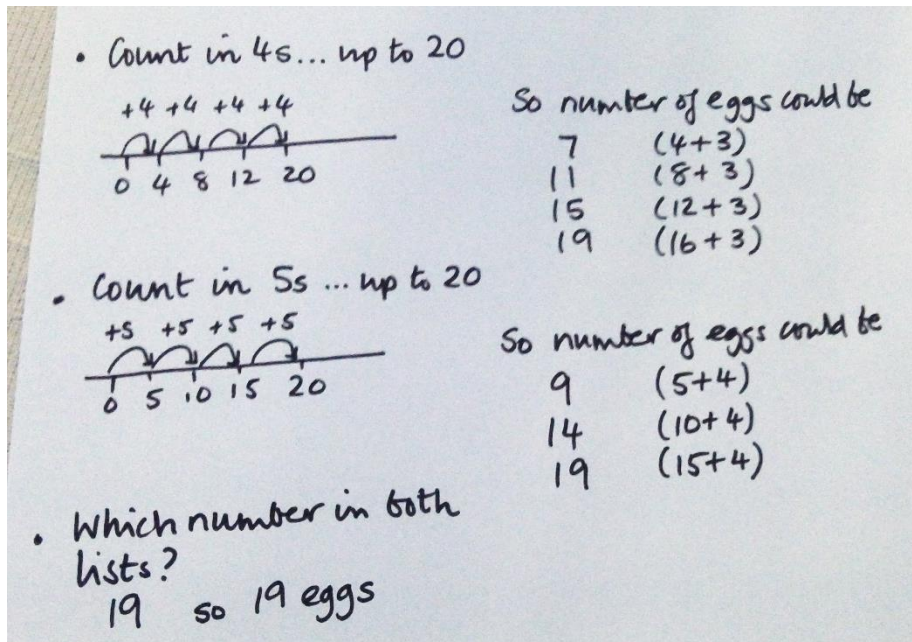 • Count in 4s... up to 20
+4 +4 +4 +4
0 4 8 12 20
So number of eggs could be
7 (4+3)
11 (8+3)
15 (12+3)
19 (16+3)
• Count in 5s ... up to 20
+5 +5 +5 +5
0 5 10 15 20
So number of eggs could be
9 (5+4)
14 (10+4)
19 (15+4)
• Which number in both
lists?
19 so 19 eggs